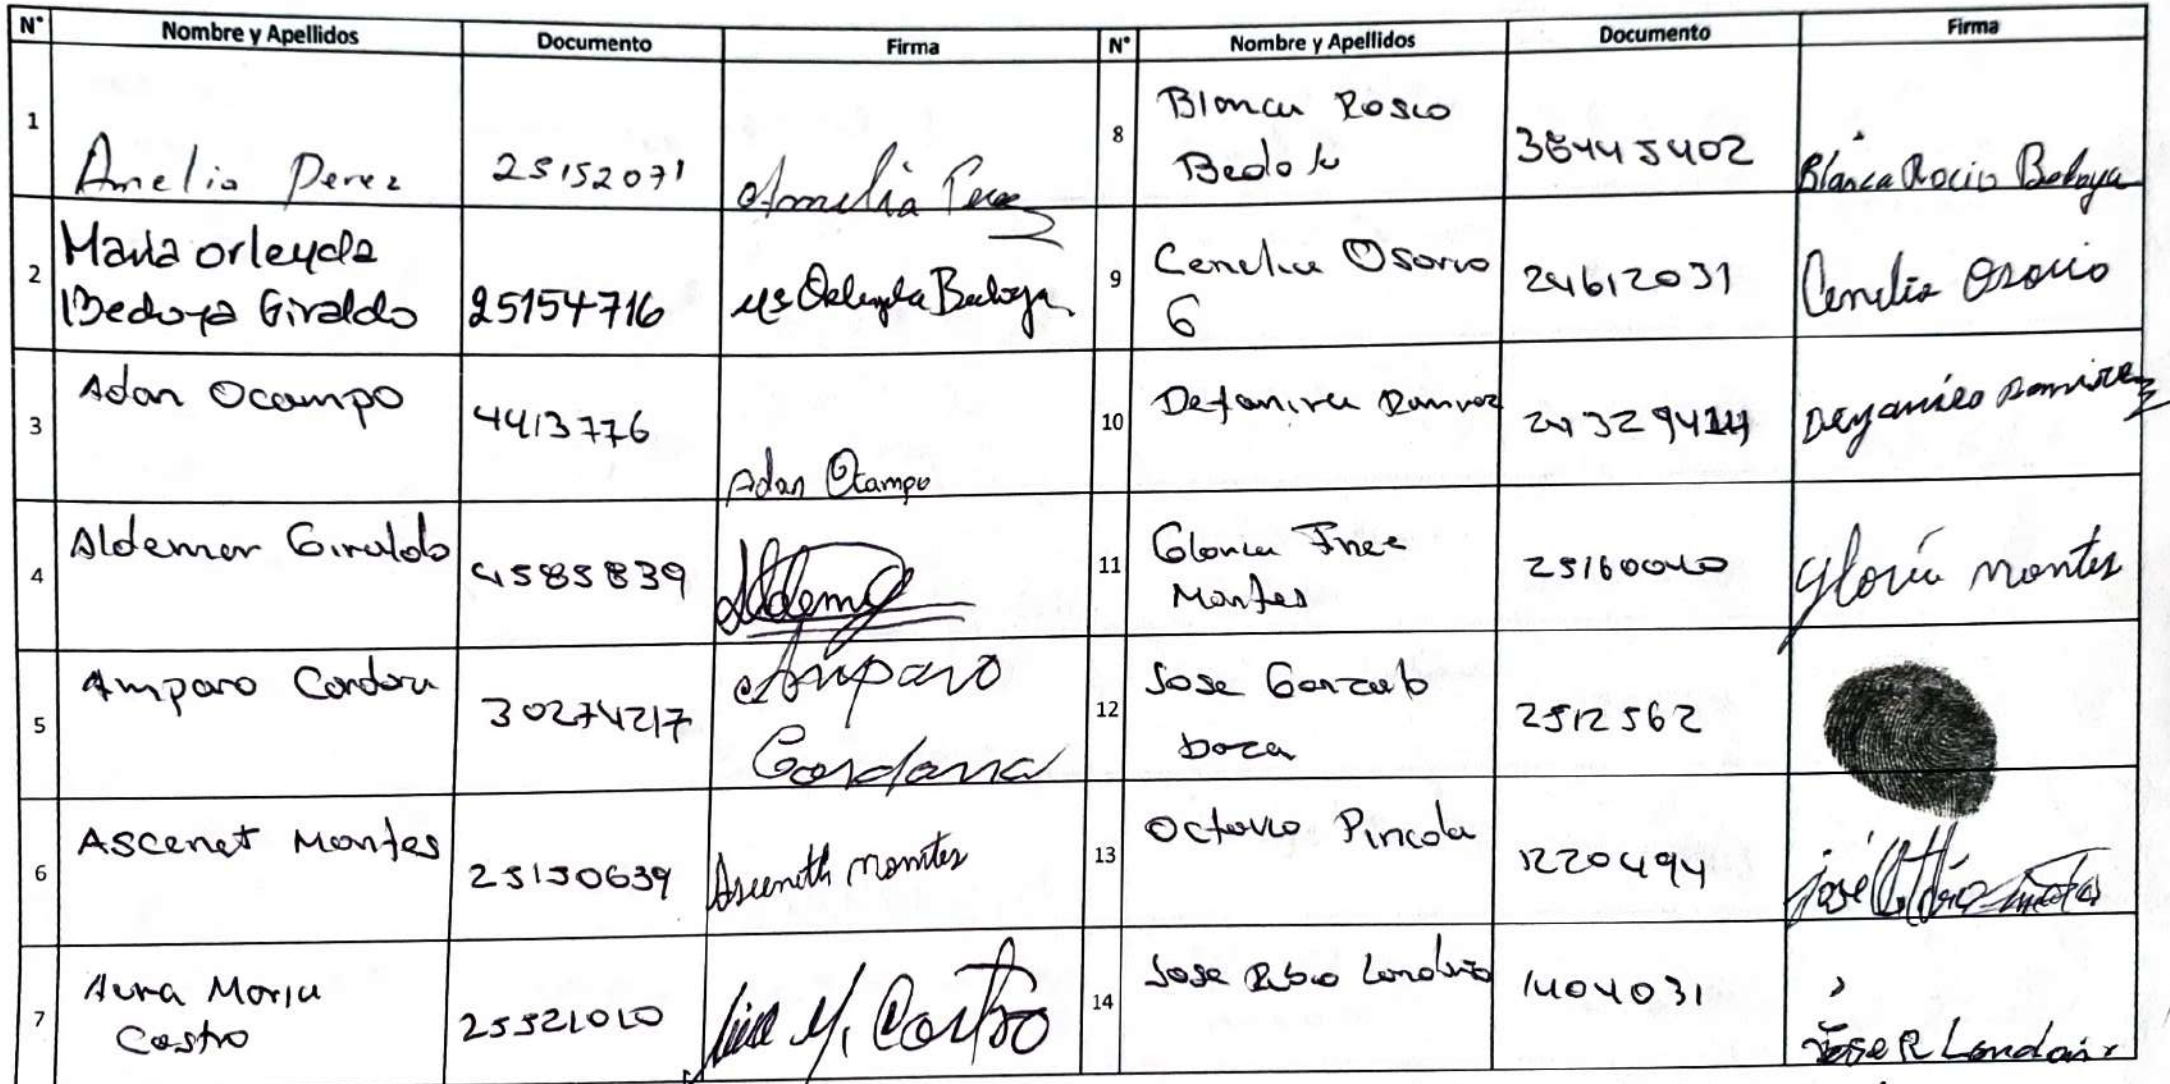 N° Nombre y Apellidos Documento Firma N° Nombre y Apellidos Documento Firma
1
Amelia Perez 25152071 Amelia Perez
8
Blanca Rosio
Bedo 38445402 Blanca Rocio Bedoya
2
Maria orleyda
Bedoya Giraldo 25154716 Ma Orleyda Bedoya
9
Cenelia Osorio
G 24612031 Cenelia Osorio
3
Adan Ocampo
4413776
Adan Ocampo
10
Dejanira Ramirez Deyanira Ramirez
4
Aldemar Giraldo 4585839 Aldem
11
Gloria Ines
Montes 25160040 Gloria Montes
5
Amparo Cardona 30274217 Amparo
Cardona
12
Jose Gonzalo
2512562
6
Ascenet Montes 25150639 Asceneth Montes
13
Octavio 1220494 José
7
Aura Maria
Castro 25321010 M. Castro
14
Jose Londoño 1404031
Jose R Londoño